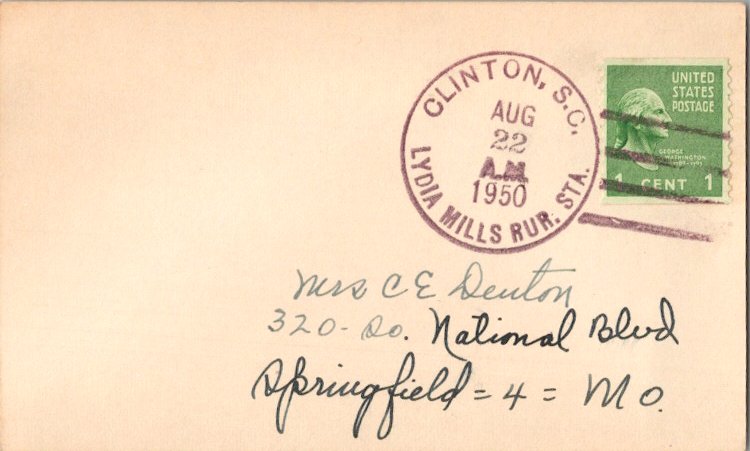 CLINTON, S.C.
AUG
22
A.M.
1950
LYDIA MILLS RUR. STA.
UNITED
STATES
POSTAGE
GEORGE
WASHINGTON
1 CENT 1
Mrs C E Denton
320-So. National Blvd
Springfield = 4 = Mo.